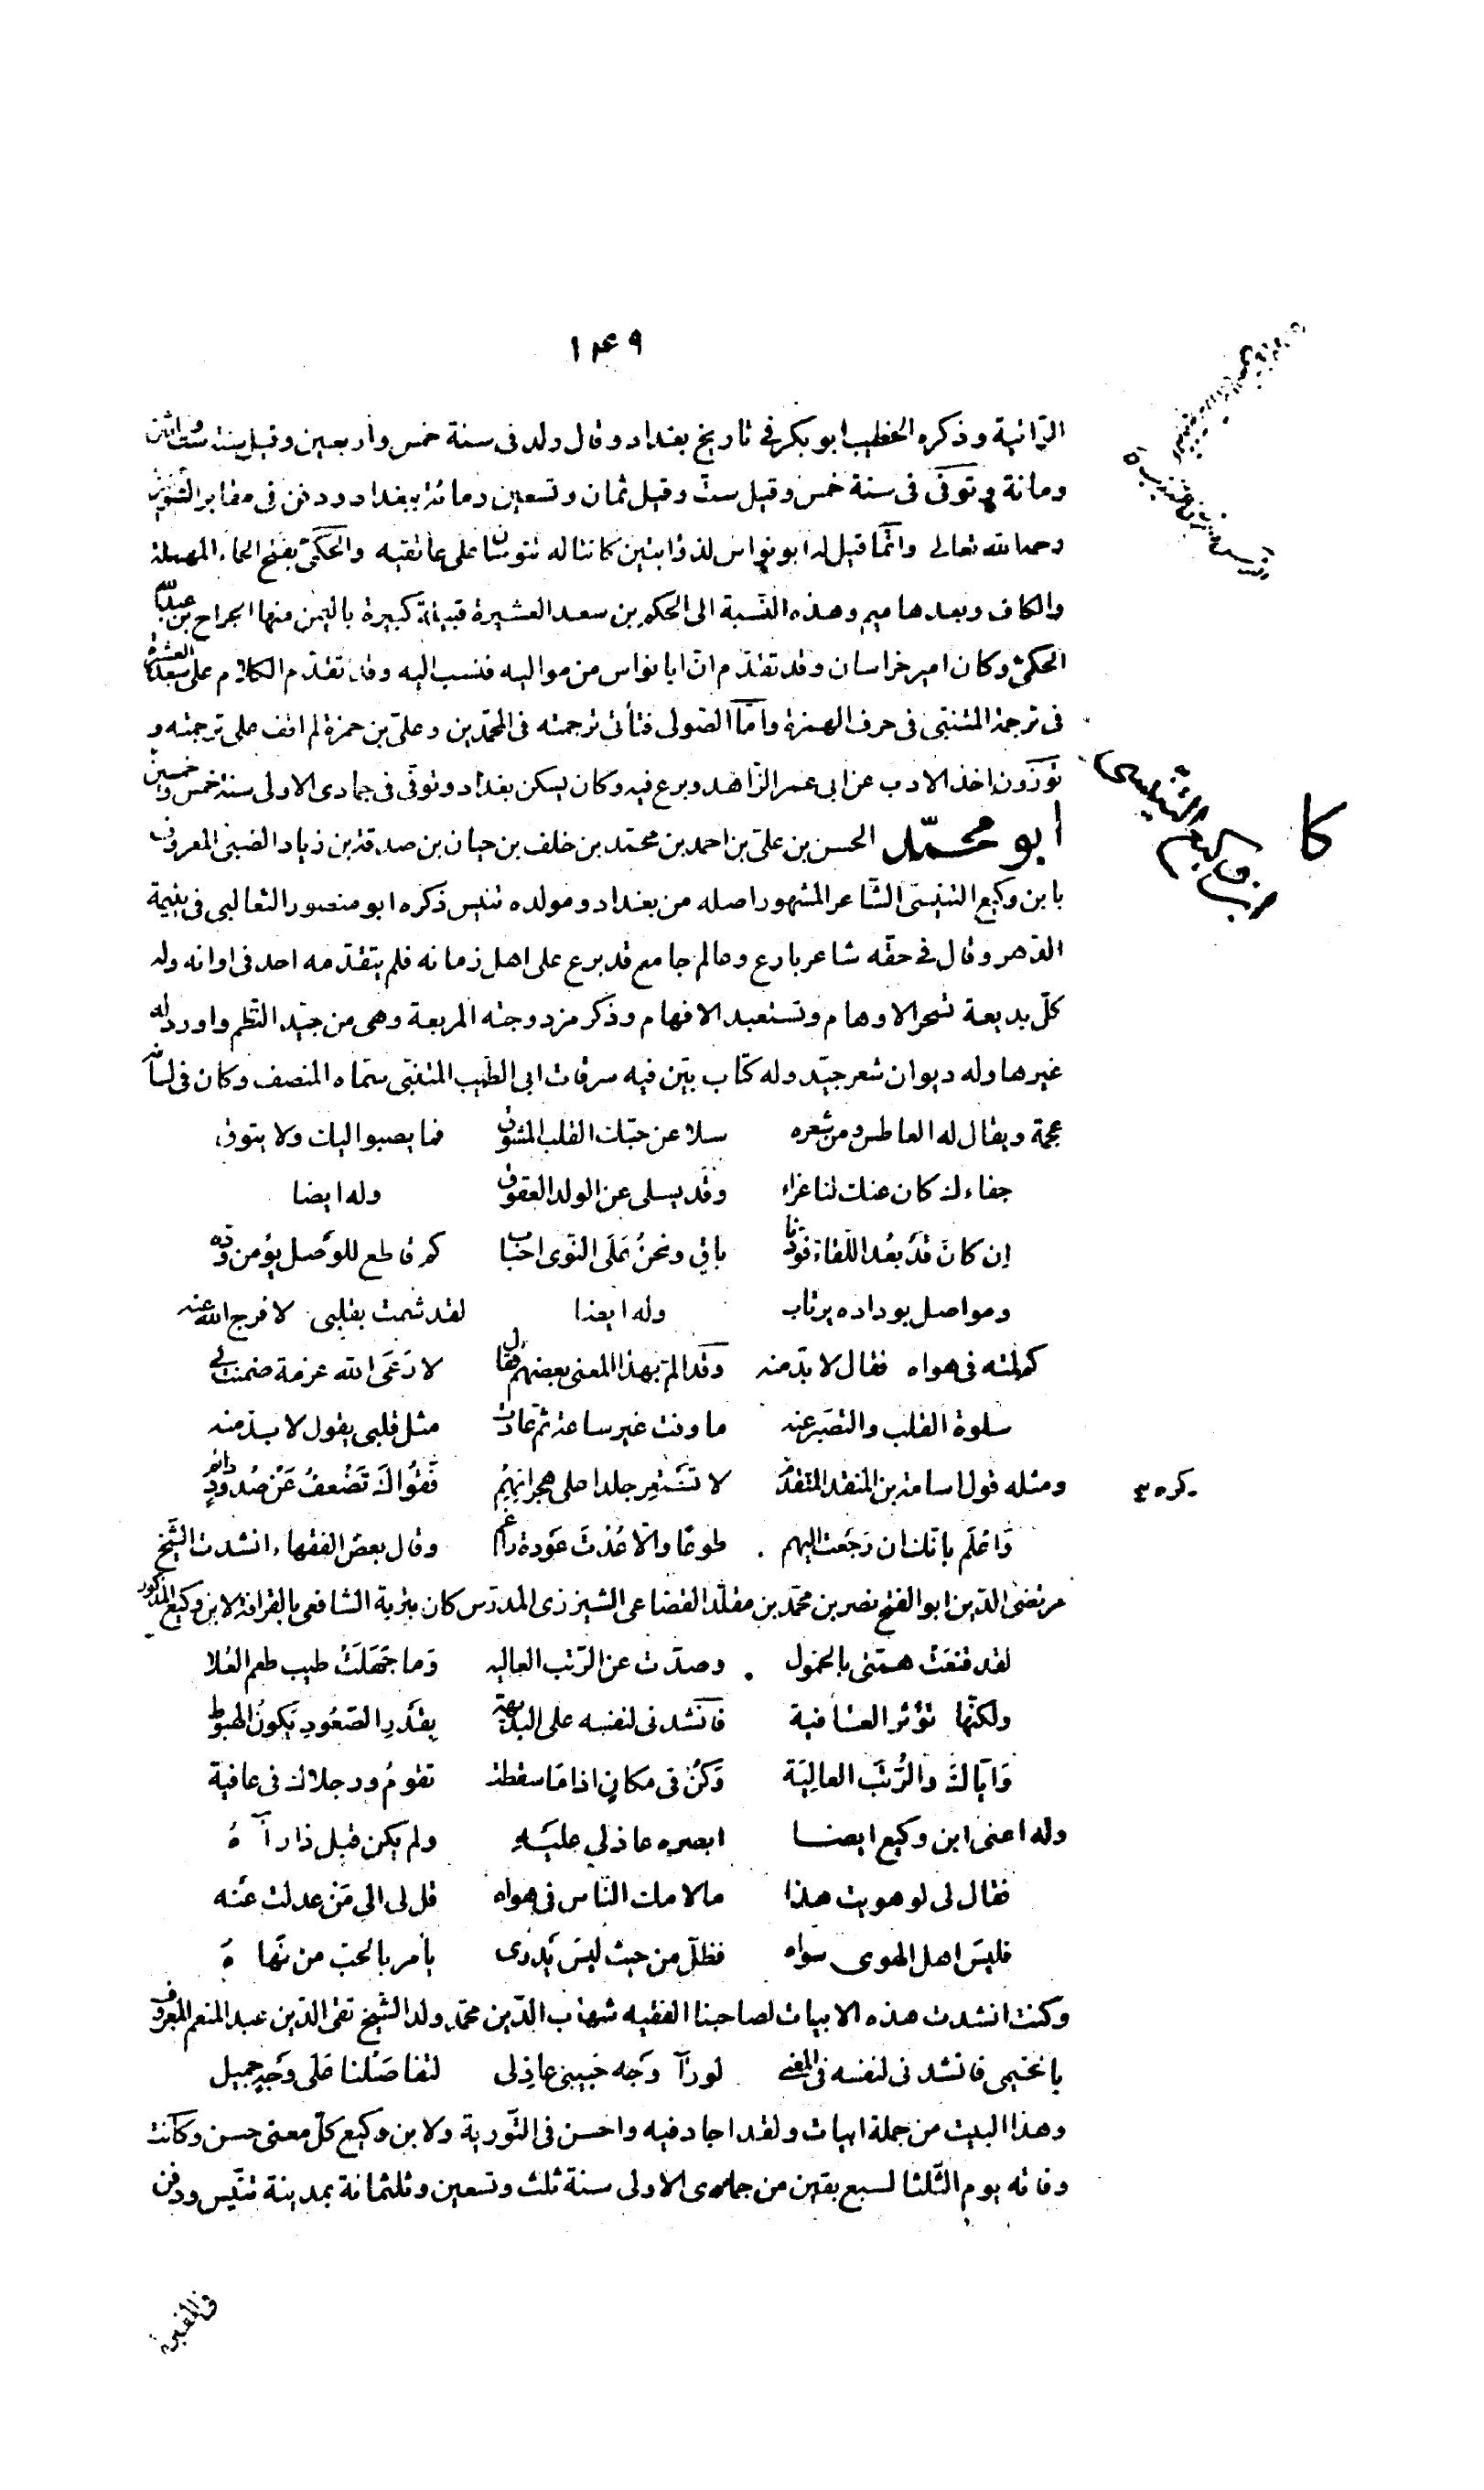 ١٤٩
الرّائية وذكره الخطيب ابو بكر فى تاريخ بغداد وقال ولد فى سنة خمس وأربعين وقيل سنة ست وثلثين
ومائة وتوفى فى سنة خمس وقيل ستّ وقيل ثمان وتسعين ومائة ببغداد ودفن فى مقابر الشونيزى
رحمه الله تعالى وانّما قيل له ابو نواس لذؤابتين كانتا له تنوسان على عاتقيه والحكمىّ بفتح الحاء المهملة
والكاف وبعدها ميم وهذه النّسبة الى الحكم بن سعد العشيرة قبيلة كبيرة باليمن منها الجراح بن عبد الله
الحكمىّ وكان امير خراسان وقد تقدّم انّ ابا نواس من مواليه فنسب اليه وقد تقدّم الكلام على سعد العشيرة
فى ترجمة المتنبى فى حرف الهمزة وامّا الصّولى فتأتى ترجمته فى المحمّدين وعلىّ بن حمزة لم اقف على ترجمته و
توزون اخذ الادب عن ابى عمر الزّاهد وبرع فيه وكان يسكن بغداد وتوفّى فى جمادى الاولى سنة خمس وخمسين
ابو محمّد الحسن بن علىّ بن احمد بن محمّد بن خلف بن حيان بن صدقة بن زياد الضبىّ المعروف
بابن وكيع التنيسىّ الشّاعر المشهور اصله من بغداد ومولده تنيس ذكره ابو منصور الثعالبى فى يتيمة
الدّهر وقال فى حقّه شاعر بارع وعالم جامع قد برع على اهل زمانه فلم يتقدّمه احد فى اوانه وله
كلّ بديعة تسحر الاوهام وتستعبد الافهام وذكر مزدوجته المربعة وهى من جيّد النّظم واورد له
غيرها وله ديوان شعر جيّد وله كتاب بيّن فيه سرقات ابى الطّيب المتنبّى سمّاه المنصف وكان فى لسانه
عجمة ويقال له العاطس ومن شعره سلا عن حبّك القلب المشوق فما يصبو اليك ولا يتوق
جفاءك كان عنك لنا عزاء وقد يسلى عن الولد العقوق وله ايضا
اِن كانَ قَدْ بَعُد اللّقاء فودّنا باق ونحنُ عَلَى النّوى احباب كم قاطع للوَصل يؤمن ودّه
ومواصل بوداده يرتاب وله ايضا لقد شمت بقلبى لا فرج الله عنه
كم لمته فى هواه فقال لا بدّ منه وقد المّ بهذا المعنى بعضهم فقال لا رَعَى الله عزمة ضمنت لى
سلوة القلب والتصبّر عنه ما ونت غير ساعة ثمّ عادت مثل قلبى يقول لا بدّ منه
ومثله قول اسامة بن المنقذ المتقدّم لا تَستعِر جلدا على هجرانهِمُ فَقُواكَ تَضْعفُ عَنْ صُدُودٍ دائم
وَاعْلَم بانّك ان رَجَعت اليهم طوعًا والّا عُدْتَ عَودة راغم وقال بعض الفقهاء انشدت الشّيخ
مرتضى الدّين ابو الفتح نصر بن محمّد بن مقلّد القضاعى الشيزرى المدرّس كان بتربة الشافعى بالقرافة لابن وكيع المذكور
لقد قنعَتْ همّتى بالخمول وصدّت عن الرّتب العاليه وَما جَهلَتْ طيب طعم العُلا
ولكنّها تؤثر العافية فانشدنى لنفسه على البديهة بِقَدرِ الصّعُودِ يَكونُ الهبوط
وَايّاكَ والرُّتَب العالِيَة وَكُنْ فى مكانٍ اذا ما سقطت تقومُ ورجلاك فى عافية
وله اعنى ابن وكيع ايضا ابصره عاذلى عليَهِ ولم يكن قبل ذا رآهُ
فقال لى لو هويت هذا ما لامك النّاس فى هواه قل لى الى مَنْ عدلت عَنه
فليسَ اهل الهوى سواه فظلّ من حيث ليسَ يَدرى يأمر بالحبّ من نَهاهُ
وكنت انشدت هذه الابيات لصاحبنا الفقيه شهاب الدّين محمّد ولد الشّيخ تقى الدّين عبد المنعم المعروف
بالخيمى فانشدنى لنفسه فى المعنى لو رآ وَجه حَبيبى عاذِلى لتفاصَلنا عَلى وَجهٍ جميل
وهذا البيت من جملة ابيات ولقد اجاد فيه واحسن فى التّورية ولابن وكيع كلّ معنى حسن وكانت
وفاته يوم الثّلثا لسبع بقين من جمادى الاولى سنة ثلث وتسعين وثلثمائة بمدينة تنّيس ودفن
كا
ابن وكيع التنيسى
فى المقبرة